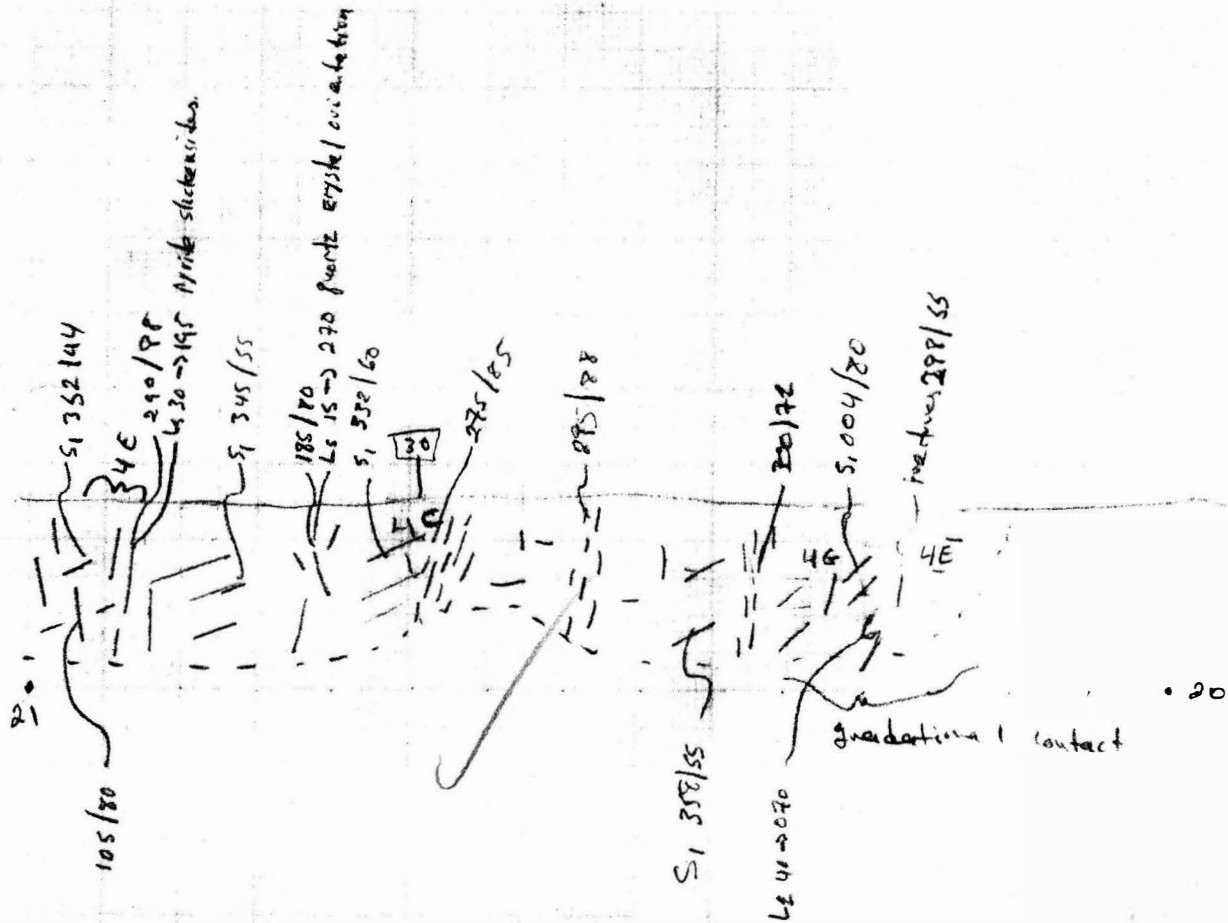 S1 352/44
4E
290/88
Ls 30→195 Pyrite slickensides.
S1 345/55
185/80
Ls 15→270 quartz crystal orientation
S1 332/60
30
4G
275/85
295/88
S1 004/80
fractures 298/55
4G
4E
105/80
S1 358/55
L2 40→070
gradational contact
20